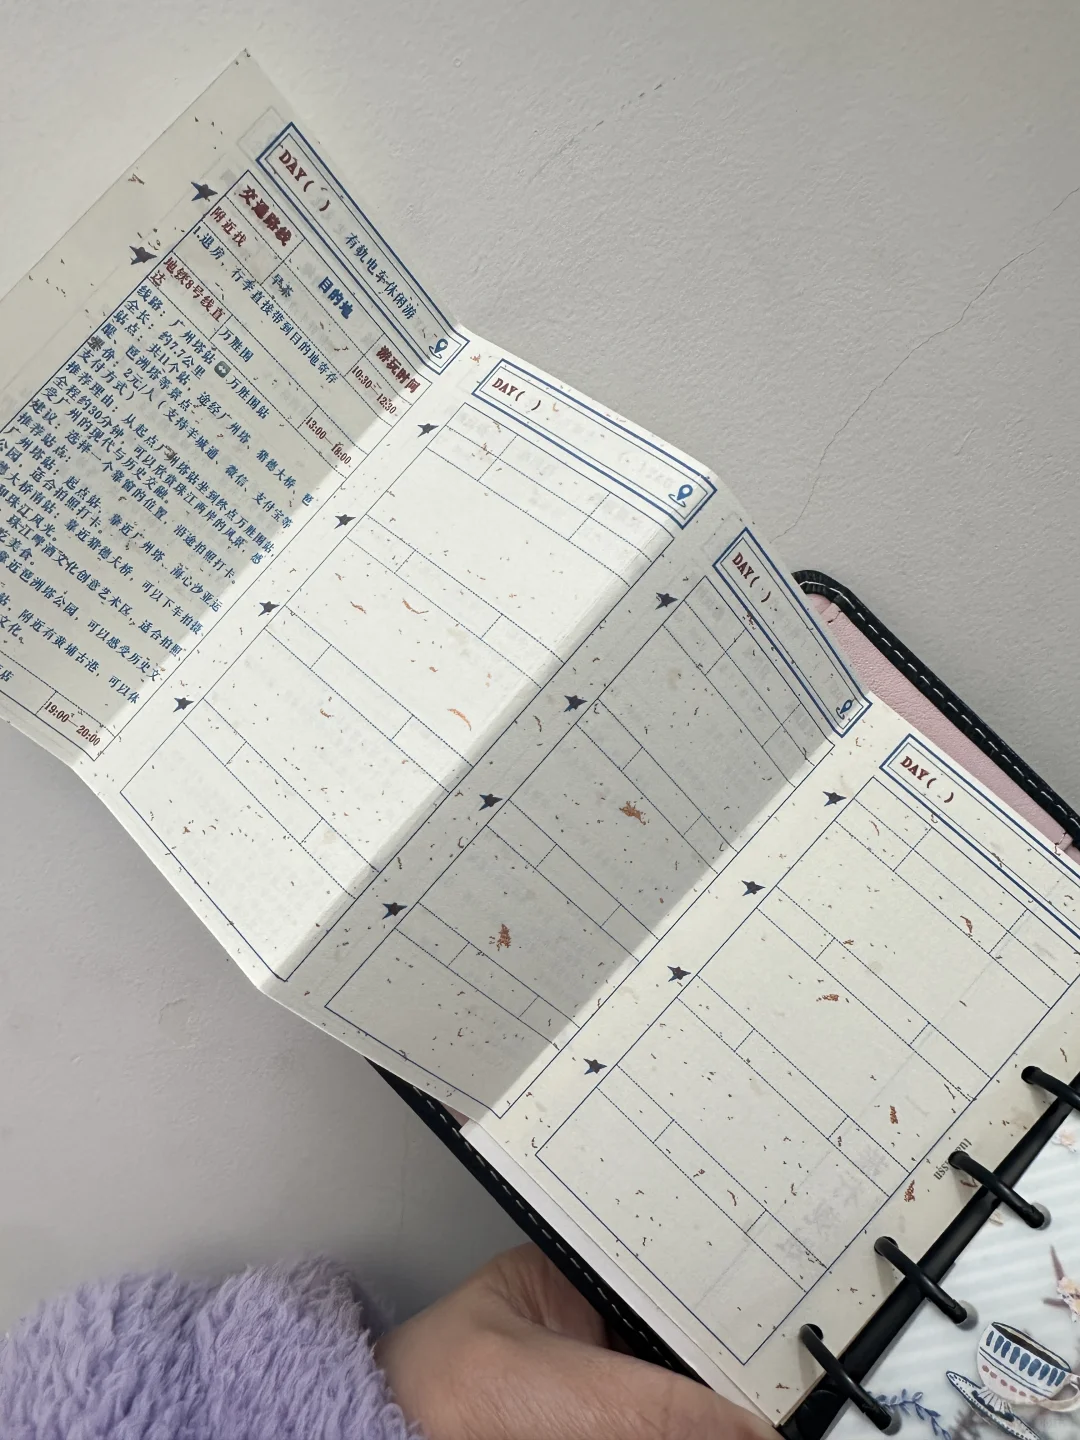 DAY( )
有轨电车休闲游
交通路线 目的地 游玩时间
附近找 早茶 10:30—12:30
1.退房，行李直接带到目的地寄存
地铁8号线直达 万胜围 13:00—18:00
线路：广州塔站 万胜围站
全长：约7.7公里
站点：共11个站，途经广州塔、猎德大桥、琶
醍、琶洲塔等景点
票价：2元/人（支持羊城通、微信、支付宝等
支付方式）
推荐理由：从起点广州塔站坐到终点万胜围站，
全程约30分钟，可以欣赏珠江两岸的风景，感
受广州的现代与历史交融。
建议：选择一个靠窗的位置，沿途拍照打卡。
推荐站点：
广州塔站：起点站，靠近广州塔、海心沙亚运
公园，适合拍照打卡。
德大桥南站：靠近猎德大桥，可以下车拍摄
珠江风光。
珠江啤酒文化创意艺术区，适合拍照
吃美食。
靠近琶洲塔公园，可以感受历史文
站，附近有黄埔古港，可以体
文化。
店 19:00—20:00
DAY( )
DAY( )
DAY( )